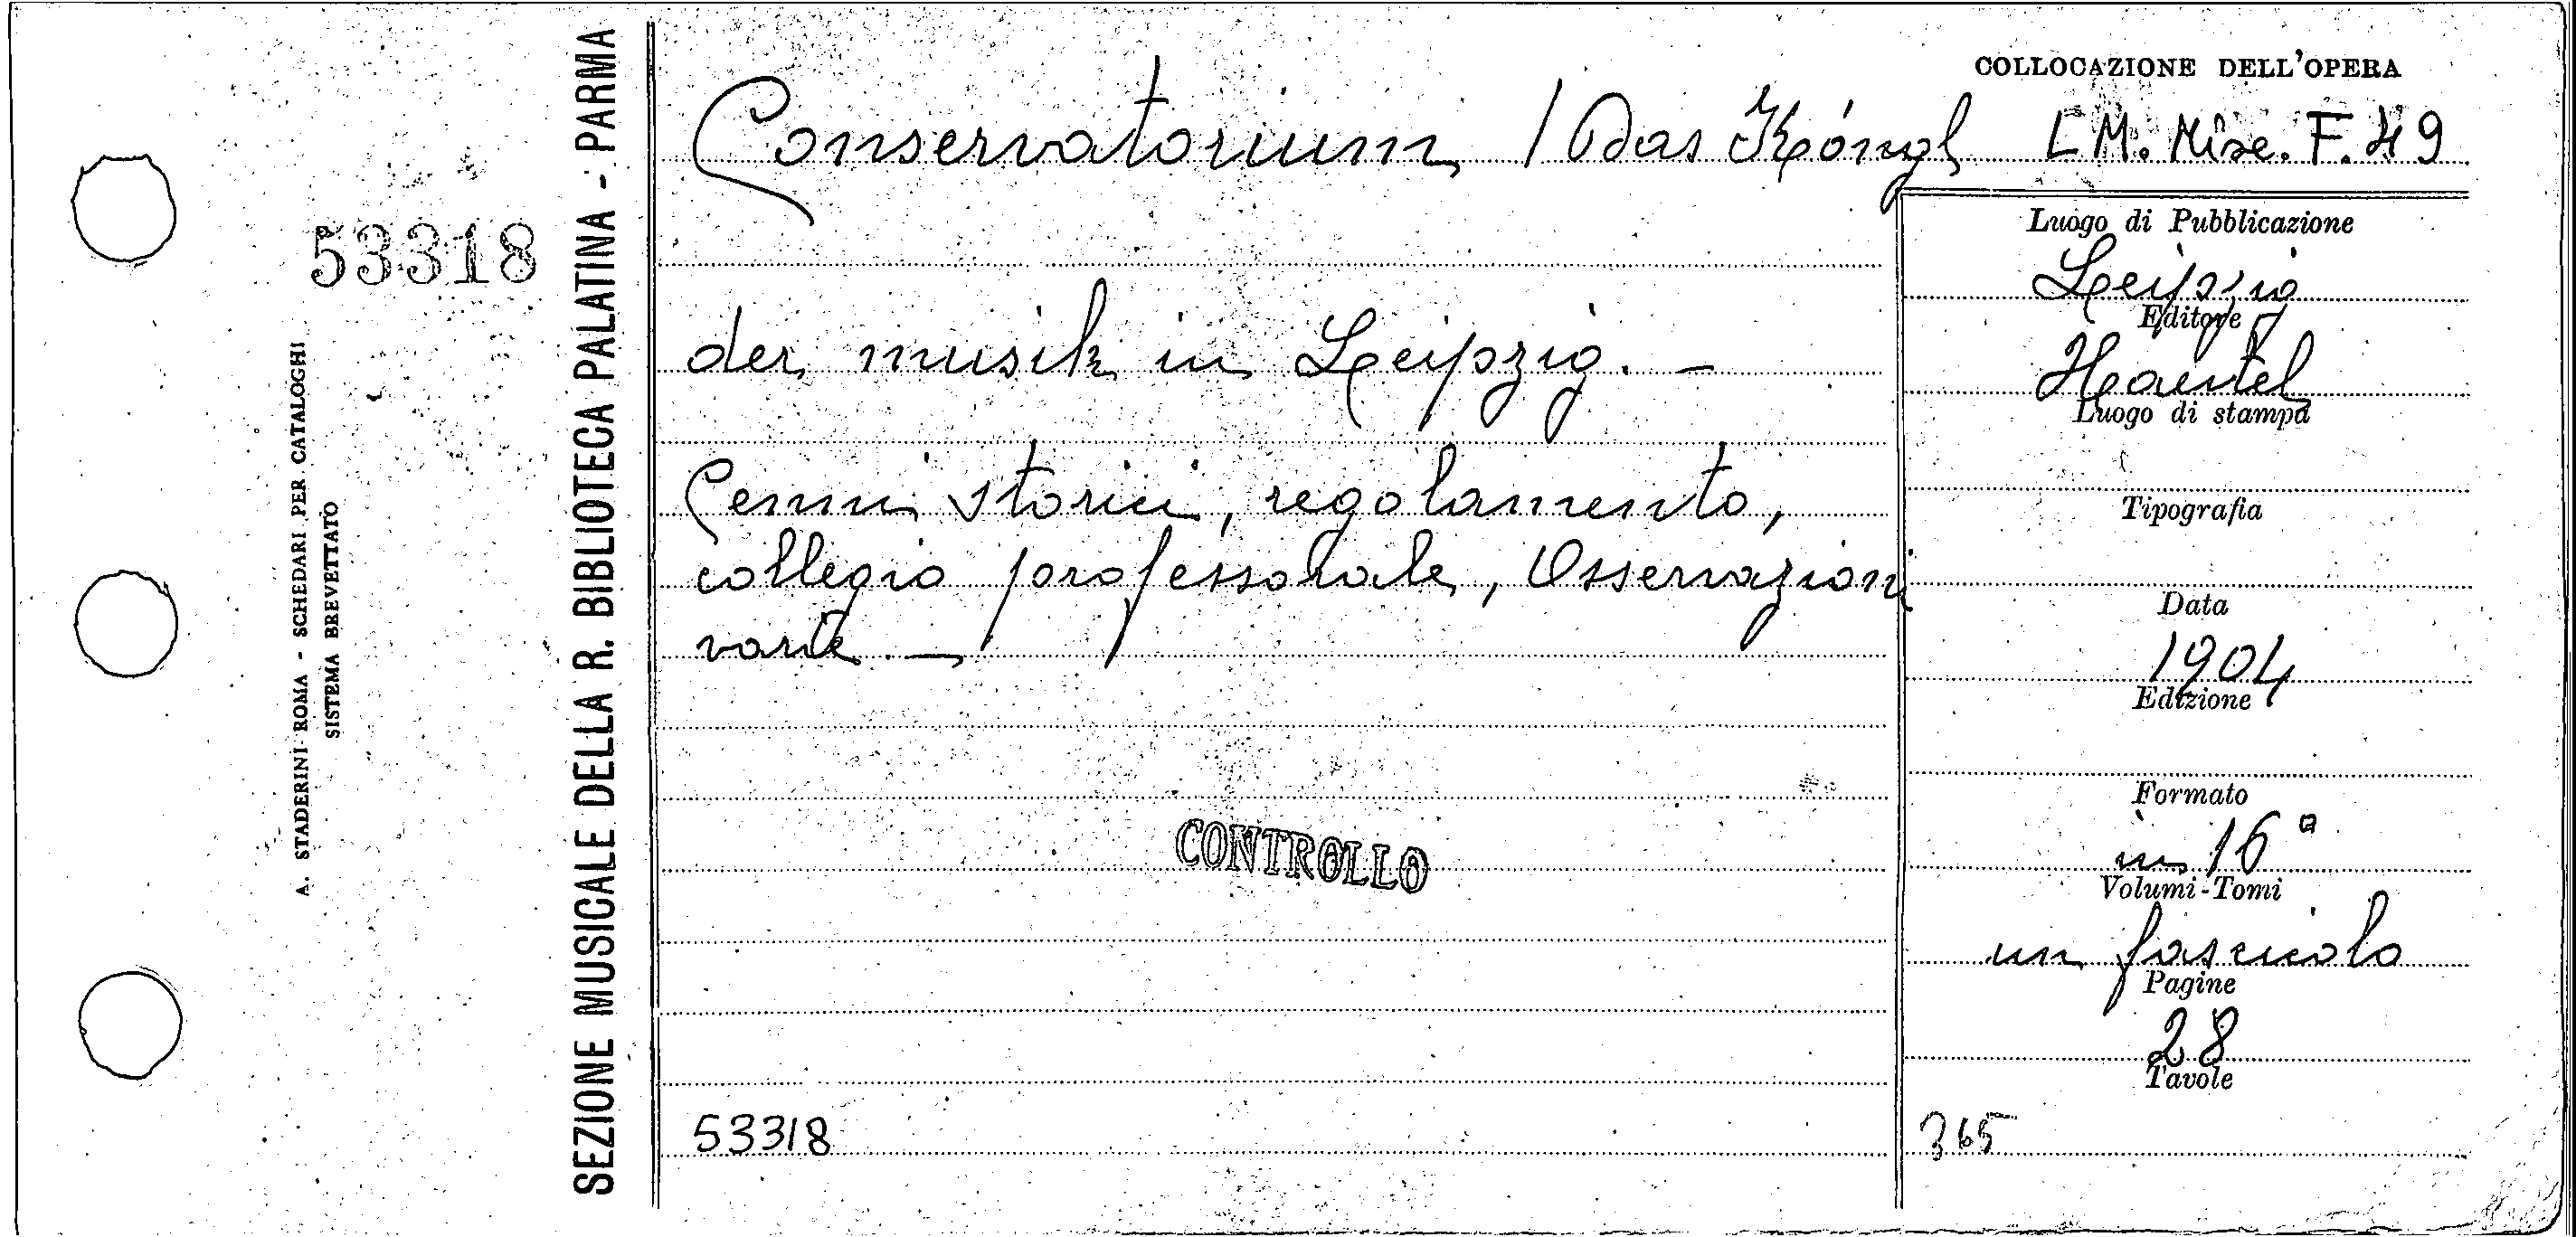 COLLOCAZIONE DELL'OPERA
Conservatorium / Das Köngl
LM. Misc. F. 49
der musik in Leipzig. -
Cenni storici, regolamento,
collegio professorale, Osservazioni
varie. -
CONTROLLO
53318
Luogo di Pubblicazione
Leipzig
Editore
Haertel
Luogo di stampa
Tipografia
Data
1904
Edizione
Formato
in 16°
Volumi-Tomi
un fascicolo
Pagine
28
Tavole
365
53318
A. STADERINI - ROMA - SCHEDARI PER CATALOGHI
SISTEMA BREVETTATO
SEZIONE MUSICALE DELLA R. BIBLIOTECA PALATINA - PARMA